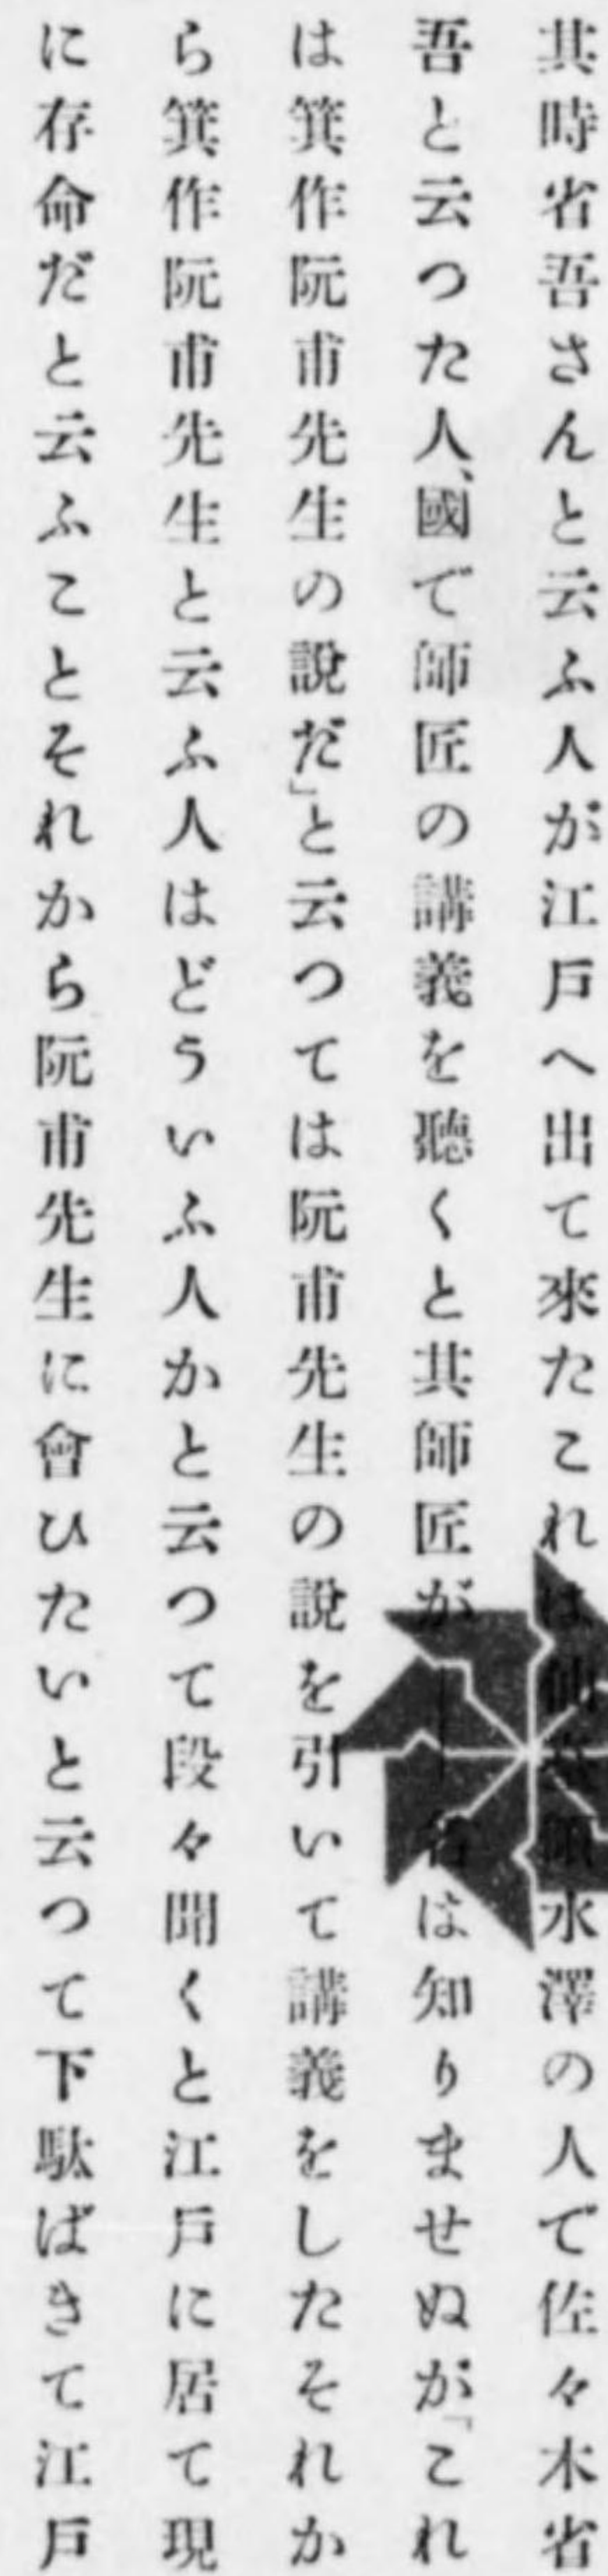 其時省吾さんと云ふ人が江戸へ出て來たこれは仙臺領水澤の人で佐々木省
吾と云つた人、國で師匠の講義を聽くと其師匠が―名は知りませぬが「これ
は箕作阮甫先生の說だ」と云つては阮甫先生の說を引いて講義をしたそれか
ら箕作阮甫先生と云ふ人はどういふ人かと云つて段々聞くと江戸に居て現
に存命だと云ふことそれから阮甫先生に會ひたいと云つて下駄ばきて江戸